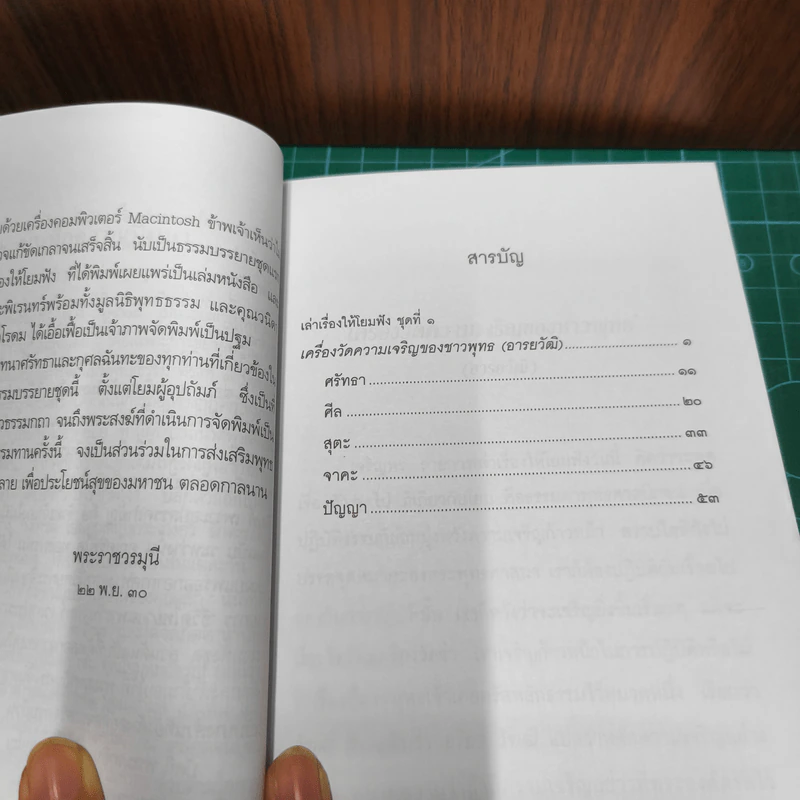 ด้วยเครื่องคอมพิวเตอร์ Macintosh ข้าพเจ้าเห็นว่า
แก้ขัดเกลาจนเสร็จสิ้น นับเป็นธรรมบรรยายชุด
ให้โยมฟัง ที่ได้พิมพ์เผยแพร่เป็นเล่มหนังสือ
พิเรนทร์พร้อมทั้งมูลนิธิพุทธธรรม และคุณวนิดา
ได้เอื้อเฟื้อเป็นเจ้าภาพจัดพิมพ์เป็นปฐม
ศรัทธาและกุศลฉันทะของทุกท่านที่เกี่ยวข้องใน
บรรยายชุดนี้ ตั้งแต่โยมผู้อุปถัมภ์ ซึ่งเป็น
ธรรมกถา จนถึงพระสงฆ์ที่ดำเนินการจัดพิมพ์เป็น
ทานครั้งนี้ จงเป็นส่วนร่วมในการส่งเสริมพุทธ
เพื่อประโยชน์สุขของมหาชน ตลอดกาลนาน
พระราชวรมุนี
๒๒ พ.ย. ๓๐
สารบัญ
เล่าเรื่องให้โยมฟัง ชุดที่ ๑
เครื่องวัดความเจริญของชาวพุทธ (อารยวัฒิ) ๑
ศรัทธา ๑๑
ศีล ๒๐
สุตะ ๓๓
จาคะ ๔๖
ปัญญา ๕๓